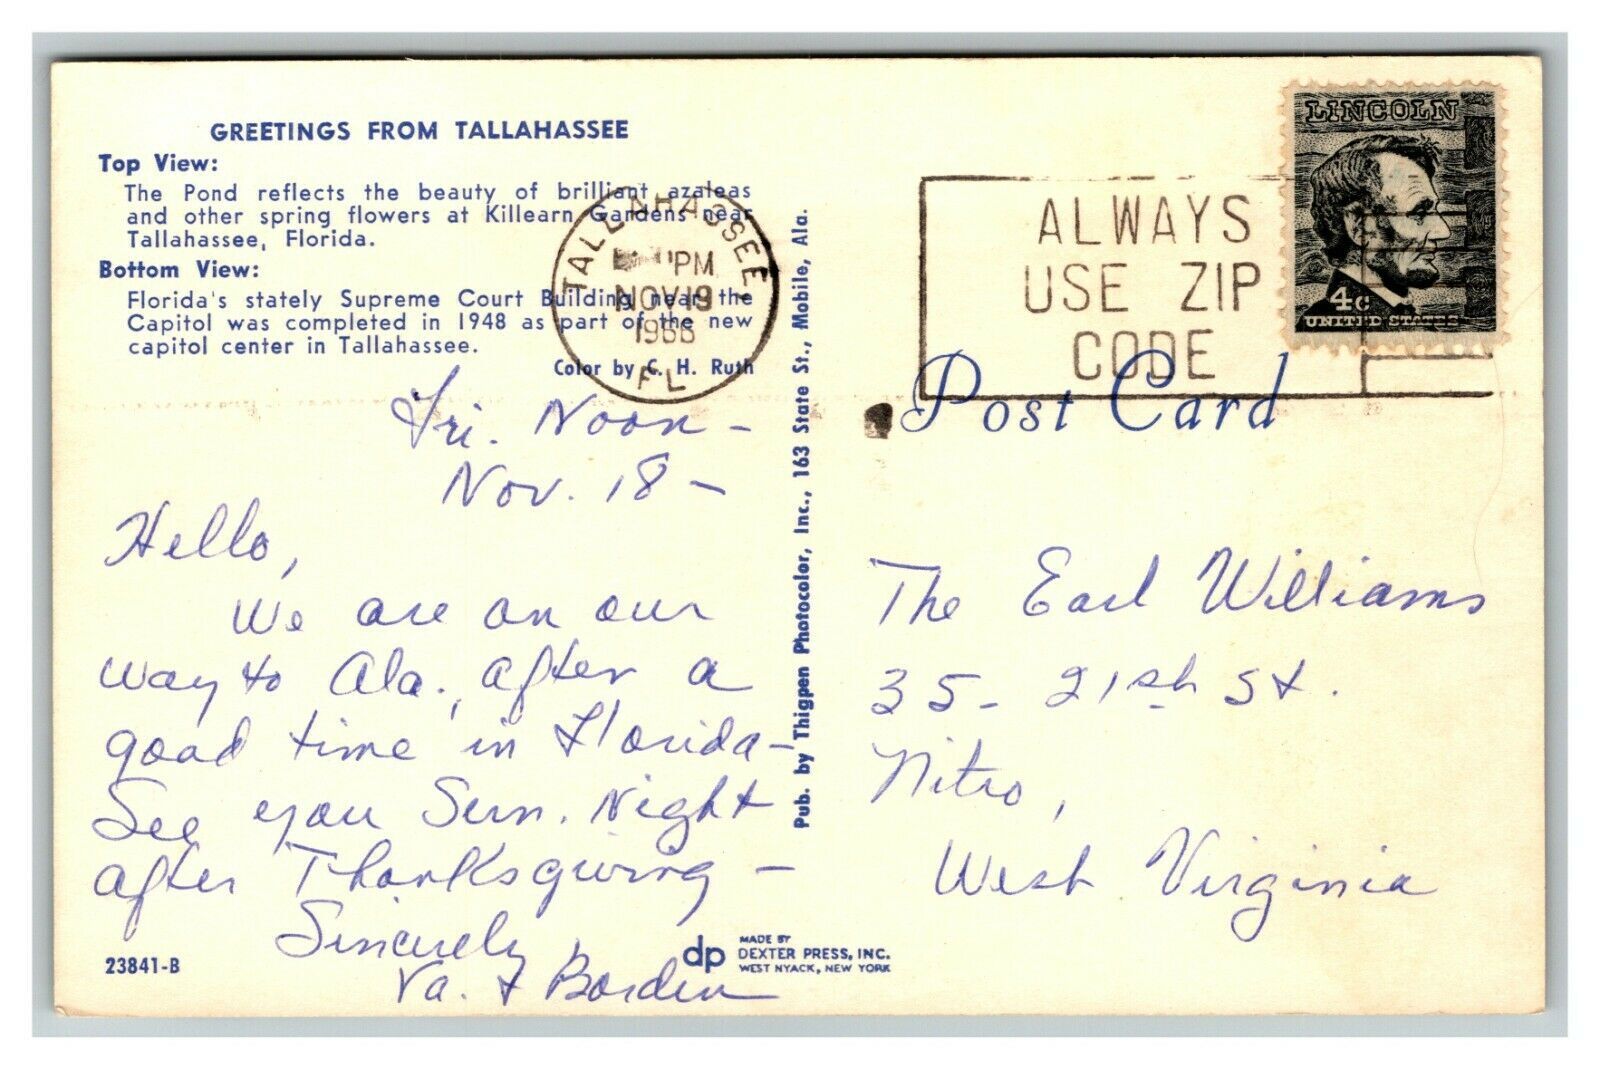 GREETINGS FROM TALLAHASSEE
Top View:
The Pond reflects the beauty of brilliant azaleas
and other spring flowers at Killearn Gardens near
Tallahassee, Florida.
Bottom View:
Florida's stately Supreme Court Building near the
Capitol was completed in 1948 as part of the new
capitol center in Tallahassee.
Color by C. H. Ruth
TALLAHASSEE,
PM
NOV 19
1966
FL
ALWAYS
USE ZIP
CODE
LINCOLN
4c
UNITED STATES
Post Card
Fri. Noon -
Nov. 18 -
Hello,
We are on our
way to Ala., after a
good time in Florida -
See you Sun. Night
after Thanksgiving -
Sincerely,
Va. & Borden
The Earl Williams
35 - 21st St.
Nitro,
West Virginia
Pub. by Thigpen Photocolor, Inc., 163 State St., Mobile, Ala.
23841-B
dp
MADE BY
DEXTER PRESS, INC.
WEST NYACK, NEW YORK